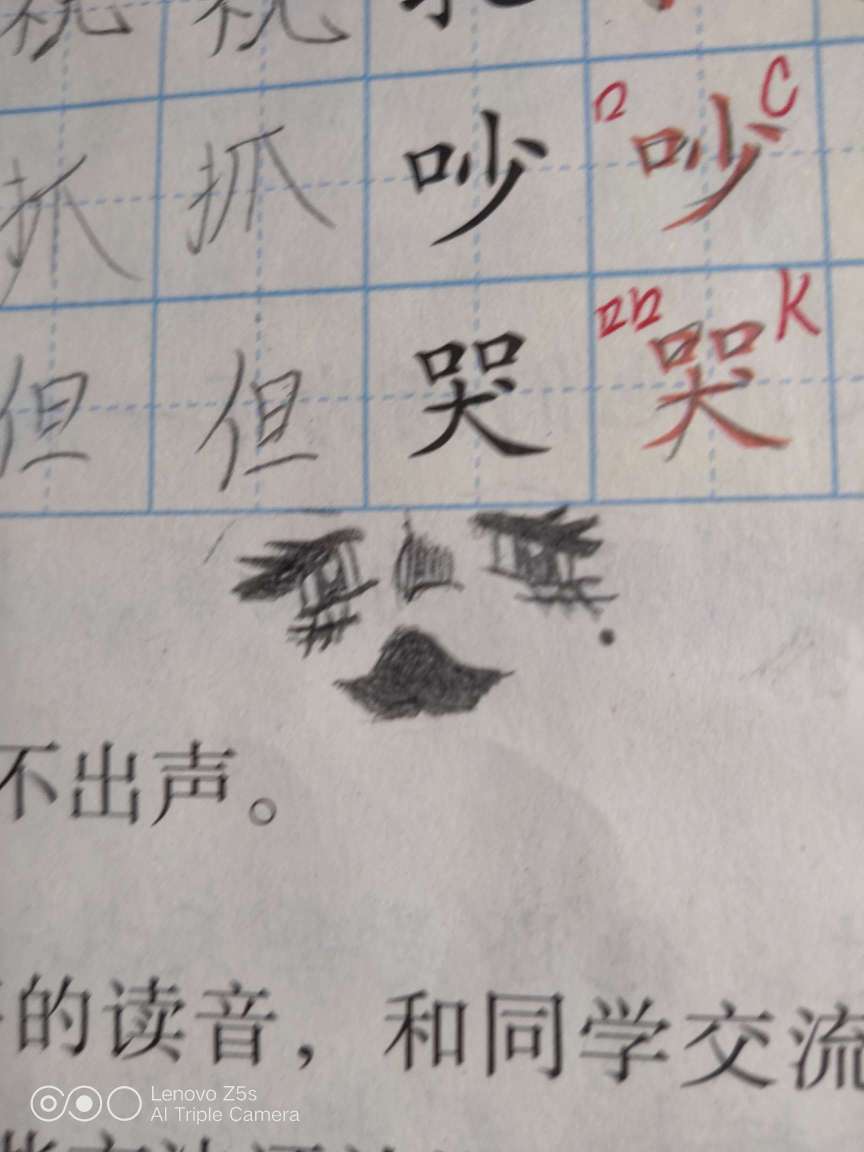 祝 祝
抓 抓 吵 口 吵 C
但 但 哭 口口 哭 K
不出声。
的读音，和同学交流
Lenovo Z5s
AI Triple Camera